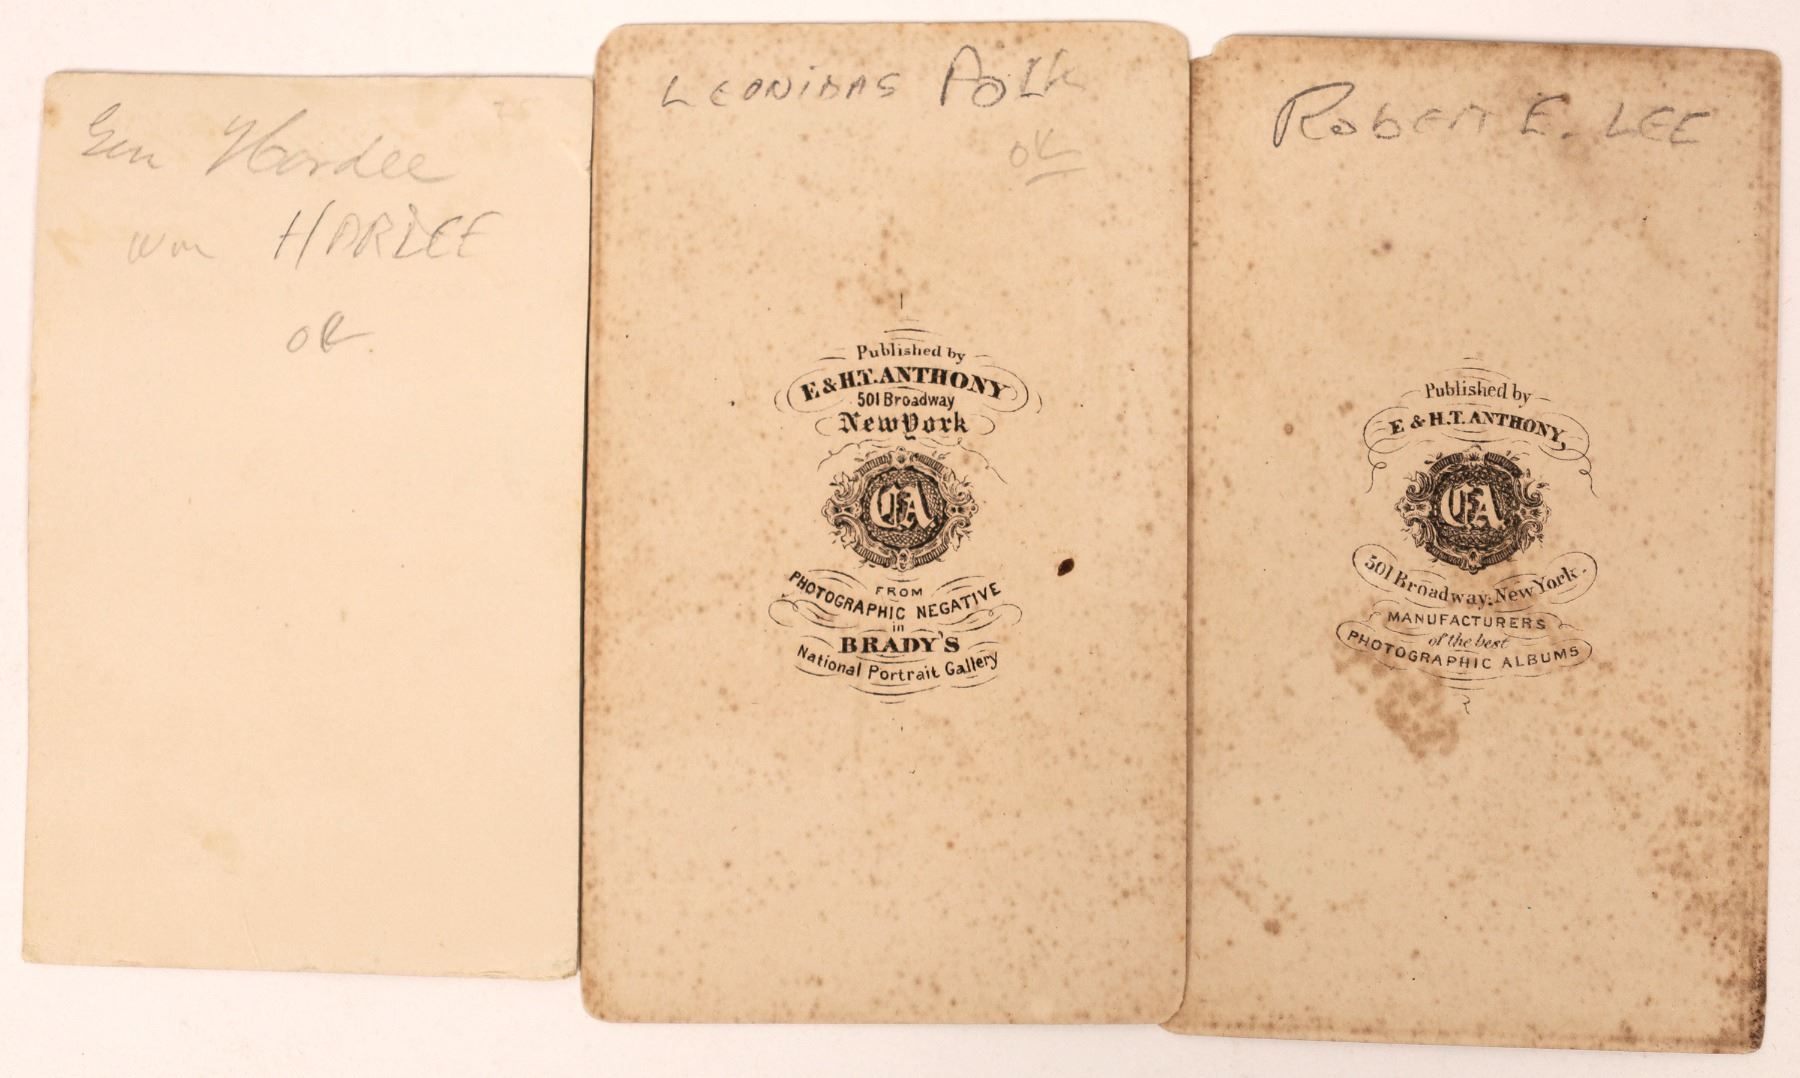 Gen Hardee
Wm HARDEE
OK
LEONIDAS POLK
OK
Published by
E & H.T. ANTHONY
501 Broadway
New York
EA
FROM
PHOTOGRAPHIC NEGATIVE
in
BRADY'S
National Portrait Gallery
ROBERT E. LEE
Published by
E & H.T. ANTHONY,
EA
501 Broadway, New York.
MANUFACTURERS
of the best
PHOTOGRAPHIC ALBUMS